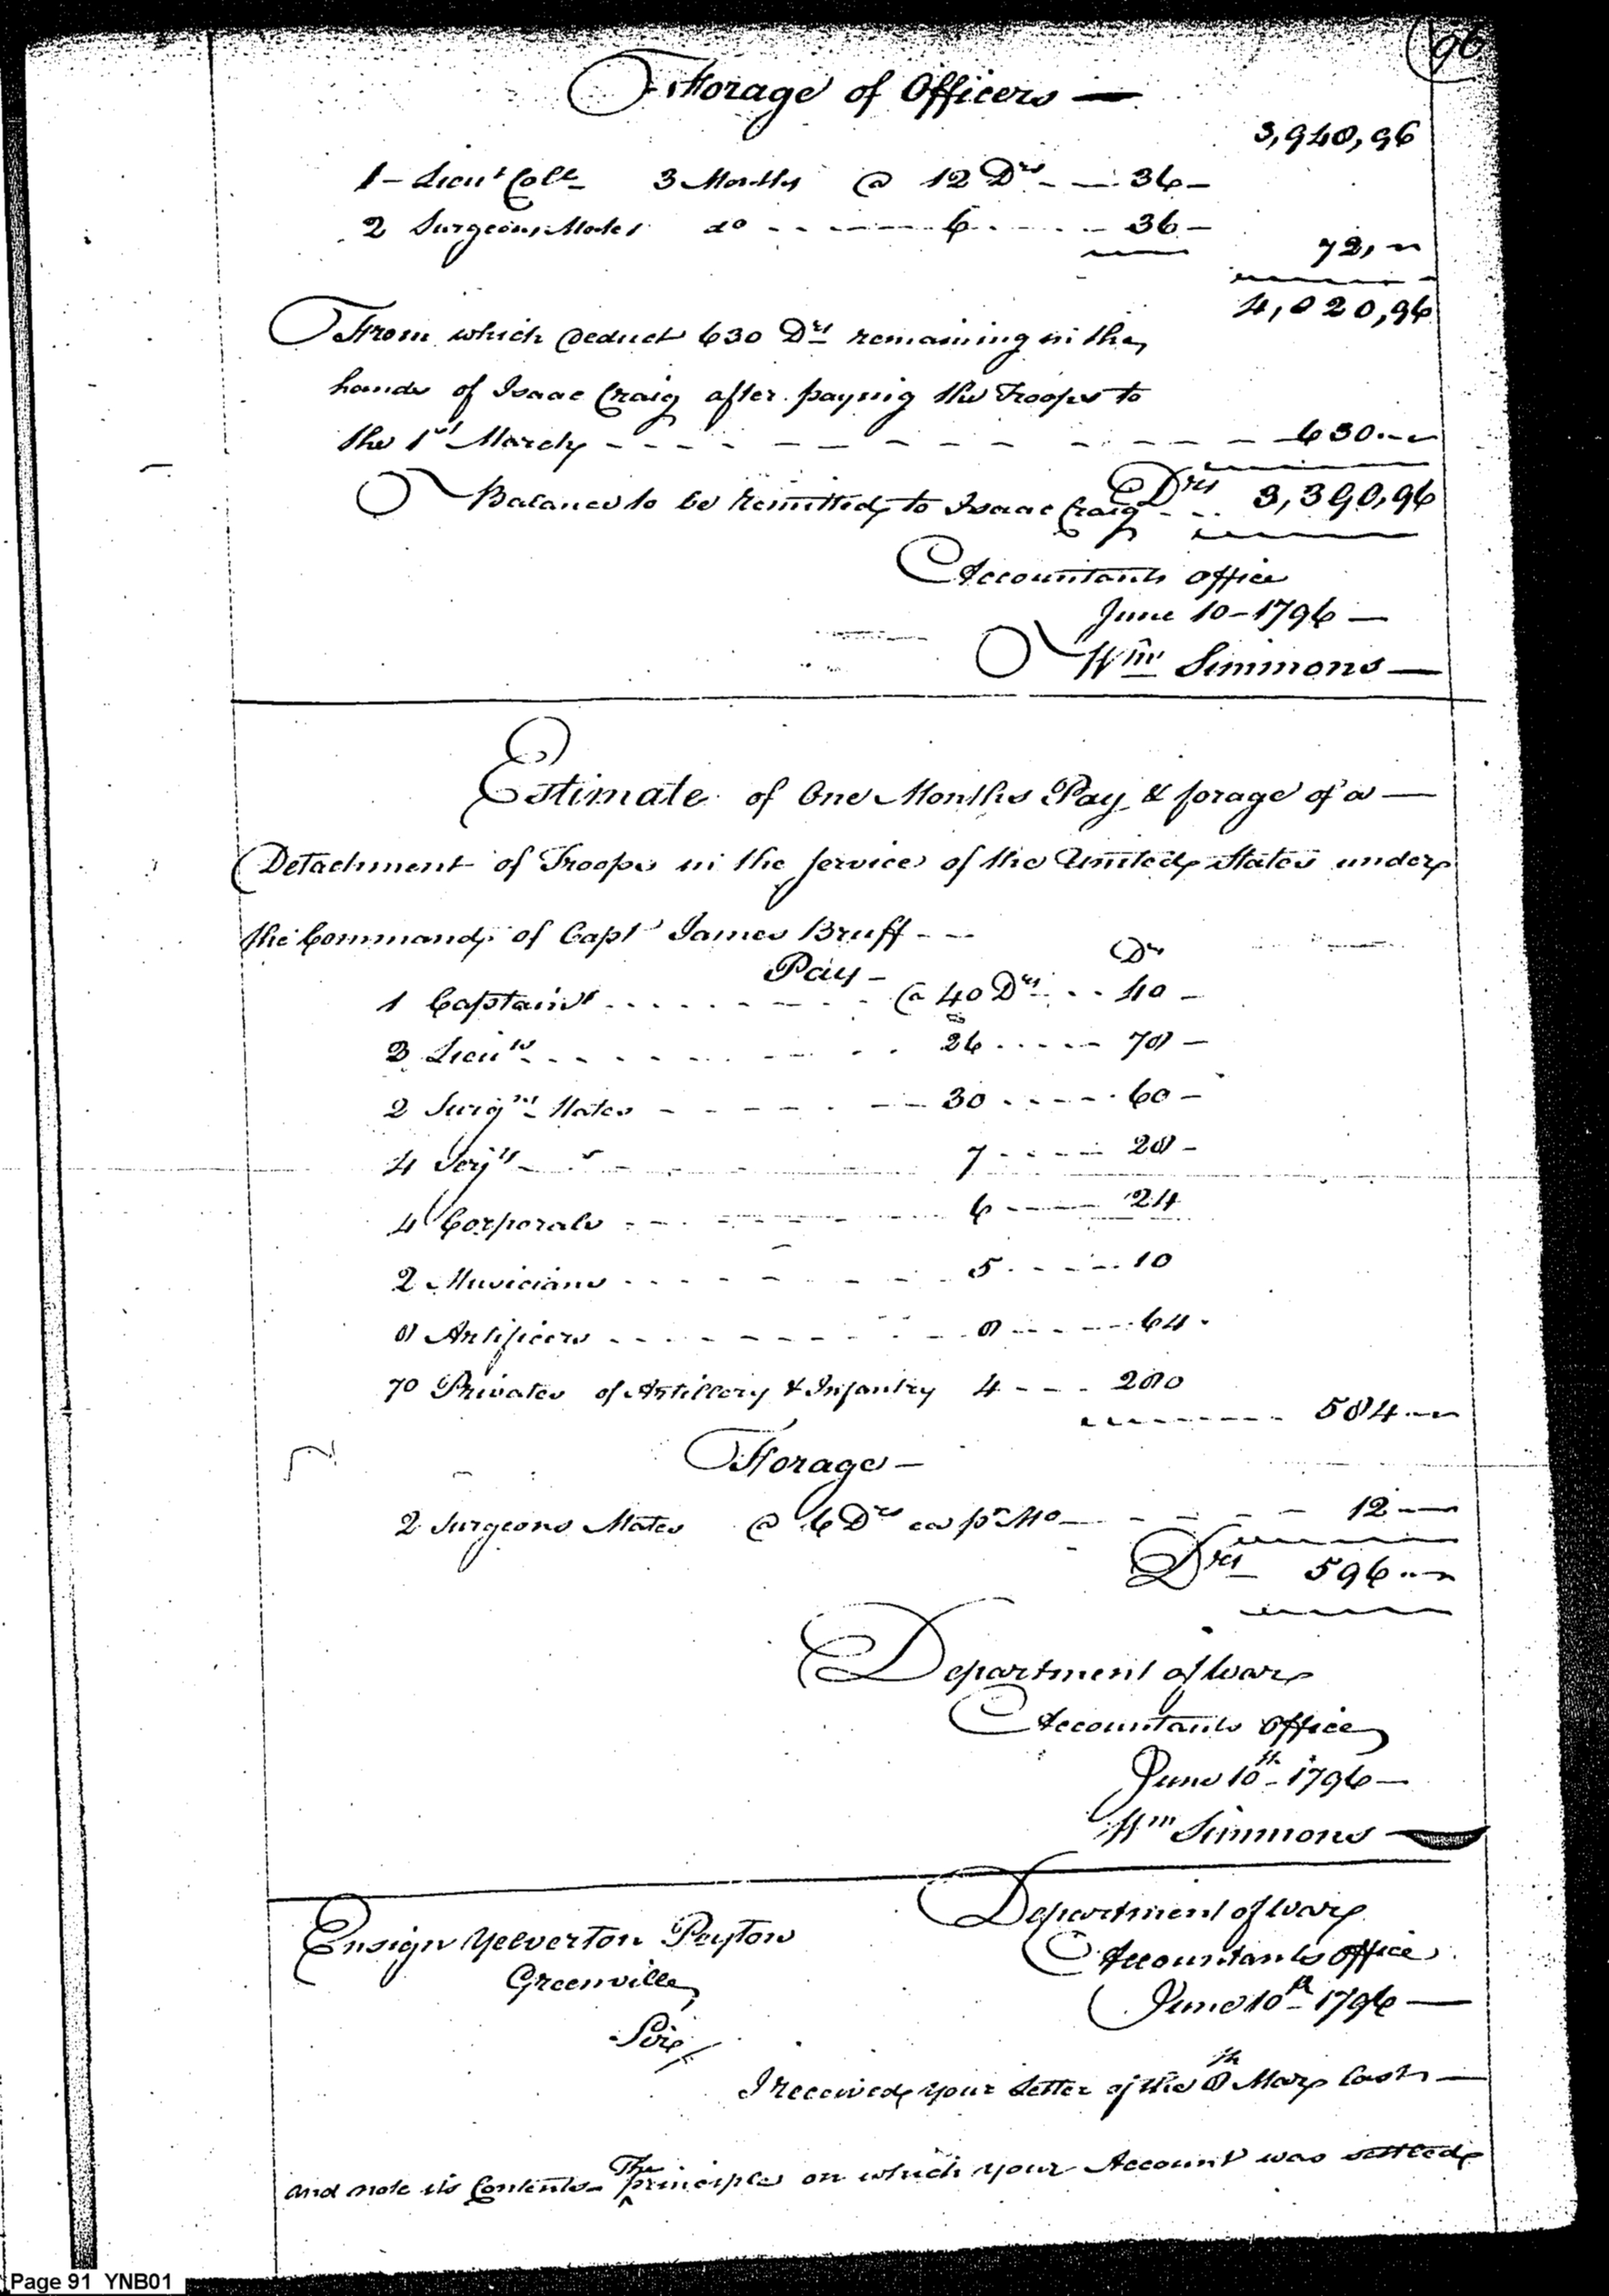 96
Forage of Officers —
3,948,96
1 - Lieut Colo 3 Months @ 12 Drs - - 36 -
2 Surgeons Mates do - - - - 6 - - - - 36 -
72, -
4,020,96
From which deduct 630 Drs remaining in the
hands of Isaac Craig after paying the Troops to
the 1st March - - - - - - - - - - - 630 . -
Balance to be Remitted to Isaac Craig - - Drs 3,390,96
Accountants office
June 10 - 1796 —
Wm Simmons —
Estimate of One Months Pay & forage of a —
Detachment of Troops in the Service of the United States under
the Command of Capt James Bruff - - -
Pay -
Drs
1 Captain . . . . . . . . . @ 40 Drs . . . 40 -
3 Lieuts - - - - - - - - 26 . . . . . 78 -
2 Surgns Mates - - - - - - - 30 . - - - . 60 -
4 Serjts - - - - - 7 - - - - 28 -
4 Corporals - - - - - - 6 - - - 24
2 Musicians - - - - - - - 5 . - - - . 10
8 Artificers - - - - - - - - 8 - - - - 64 .
70 Privates of Artillery & Infantry 4 - - - 280
- - - - - - - 584 . -
Forage —
2 Surgeons Mates @ 6 Drs ea pr Mo - - - - - 12 -
Drs 596 . . -
Department of War
Accountants Office
June 10th - 1796 —
Wm Simmons —
Department of War
Ensign Yelverton Peyton
Accountants Office
Greenville
June 10th - 1796 —
Sir/
I received your Letter of the 8th May last —
and note its Contents - The principles on which your Account was settled
Page 91 YNB01